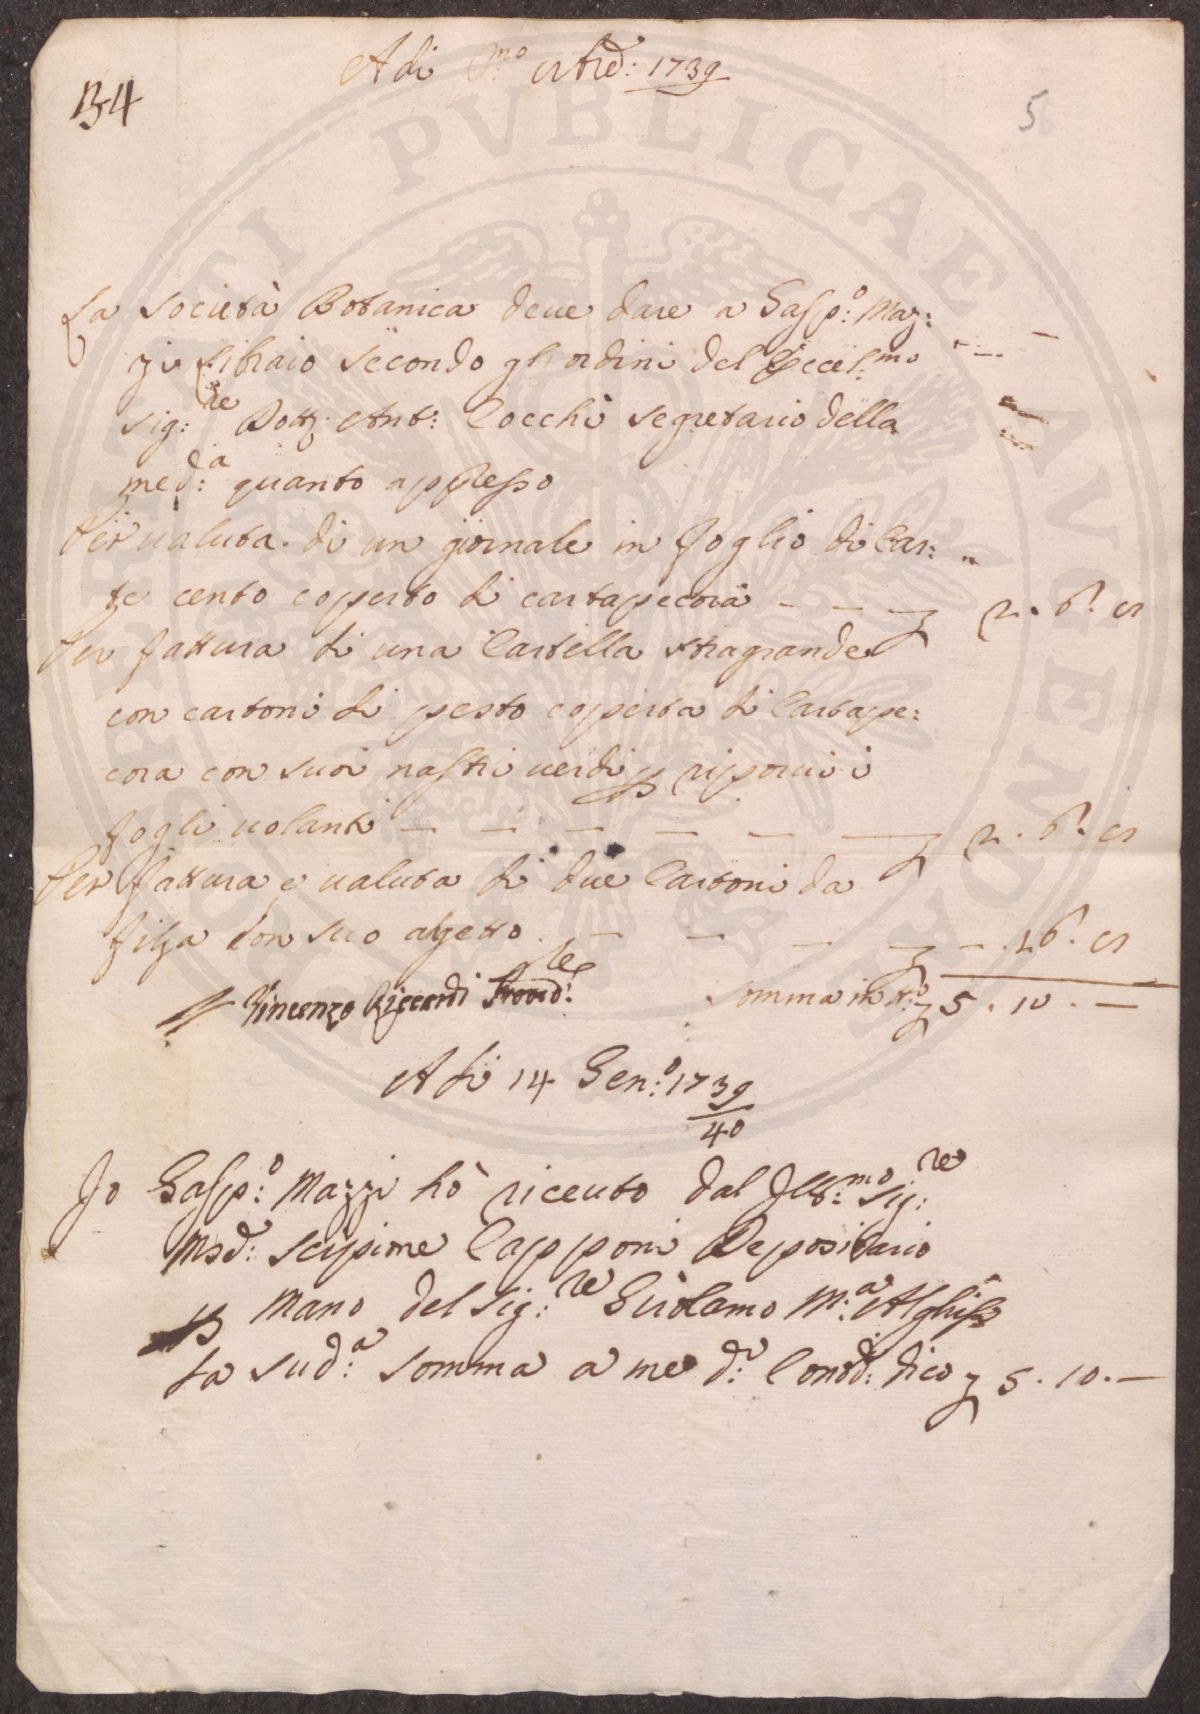 Adi P.mo 1739
134
5
La Società Botanica deve dare a Gasp:o Maz:
zi Libraio secondo gli ordini del Eccel:mo
Sig:re Dott: Ant: Cocchi segretario della
med:a quanto appresso
Per valuta di un giornale in foglio di Car:
te cento coperto di cartapecora — — — 2 . 6 . 8
Per fattura di una Cartella stragrande
con cartoni di pesto coperta di Cartape:
cora con suoi nastri verdi p riporvi i
fogli volanti — — — — — — 2 . 6 . 8
Per fattura e valuta di due Cartoni da
filza con suo aghetto — — — — — . 16 . 8
Vincenzo Riccardi Provid:re Somma in tt:o 5 . 10 . —
Adi 14 Gen:o 1739/40
Io Gasp:o Mazzi hò riceuto dal Ill:mo Sig:re
Scipione Capponi Depositario
p mano del Sig:re Girolamo M:a
la sud:a somma a me d:o dico 5 . 10 . —
REI PVBLICAE AVGENDAE